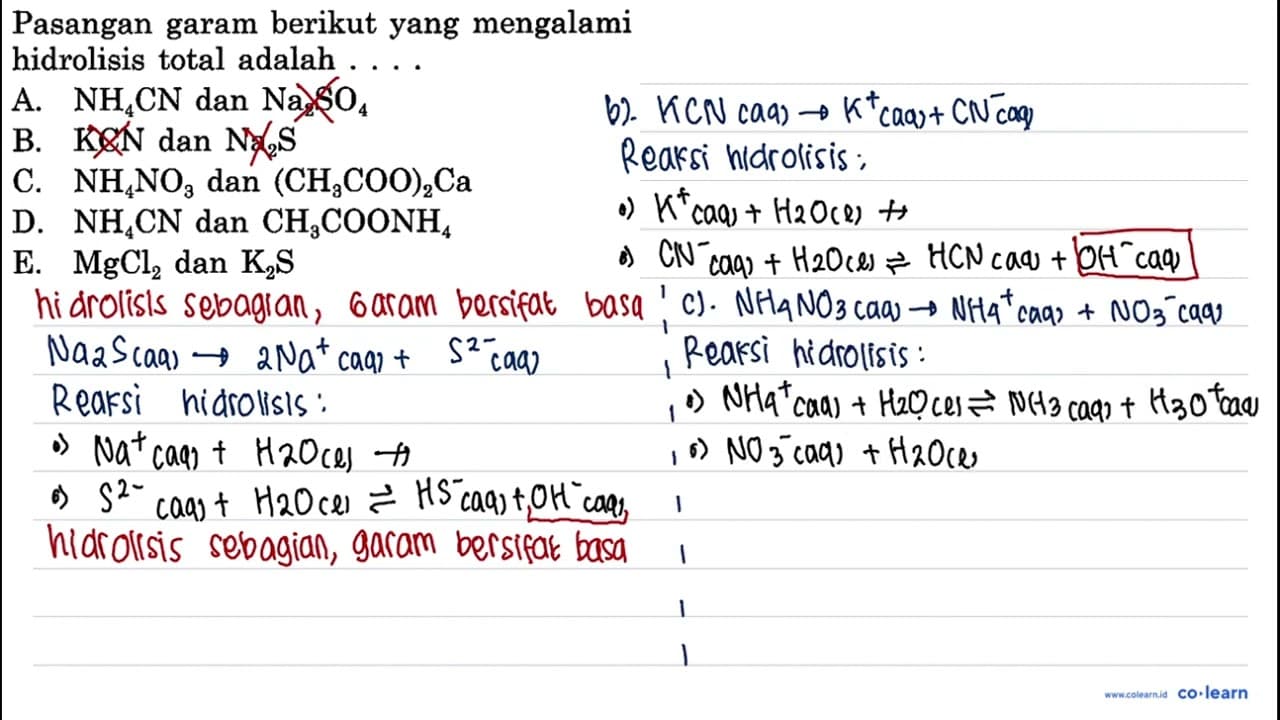 Pasangan garam berikut yang mengalami
hidrolisis total adalah . . . .
A. NH₄CN dan Na₂SO₄
B. KCN dan Na₂S
C. NH₄NO₃ dan (CH₃COO)₂Ca
D. NH₄CN dan CH₃COONH₄
E. MgCl₂ dan K₂S
hidrolisis sebagian, Garam bersifat basa
Na₂S(aq) → 2Na⁺(aq) + S²⁻(aq)
Reaksi hidrolisis :
•) Na⁺(aq) + H₂O(l) ↛
•) S²⁻(aq) + H₂O(l) ⇌ HS⁻(aq) + OH⁻(aq)
hidrolisis sebagian, garam bersifat basa
b). KCN(aq) → K⁺(aq) + CN⁻(aq)
Reaksi hidrolisis :
•) K⁺(aq) + H₂O(l) ↛
•) CN⁻(aq) + H₂O(l) ⇌ HCN(aq) + OH⁻(aq)
c). NH₄NO₃(aq) → NH₄⁺(aq) + NO₃⁻(aq)
Reaksi hidrolisis :
•) NH₄⁺(aq) + H₂O(l) ⇌ NH₃(aq) + H₃O⁺(aq)
•) NO₃⁻(aq) + H₂O(l)
www.colearn.id co·learn